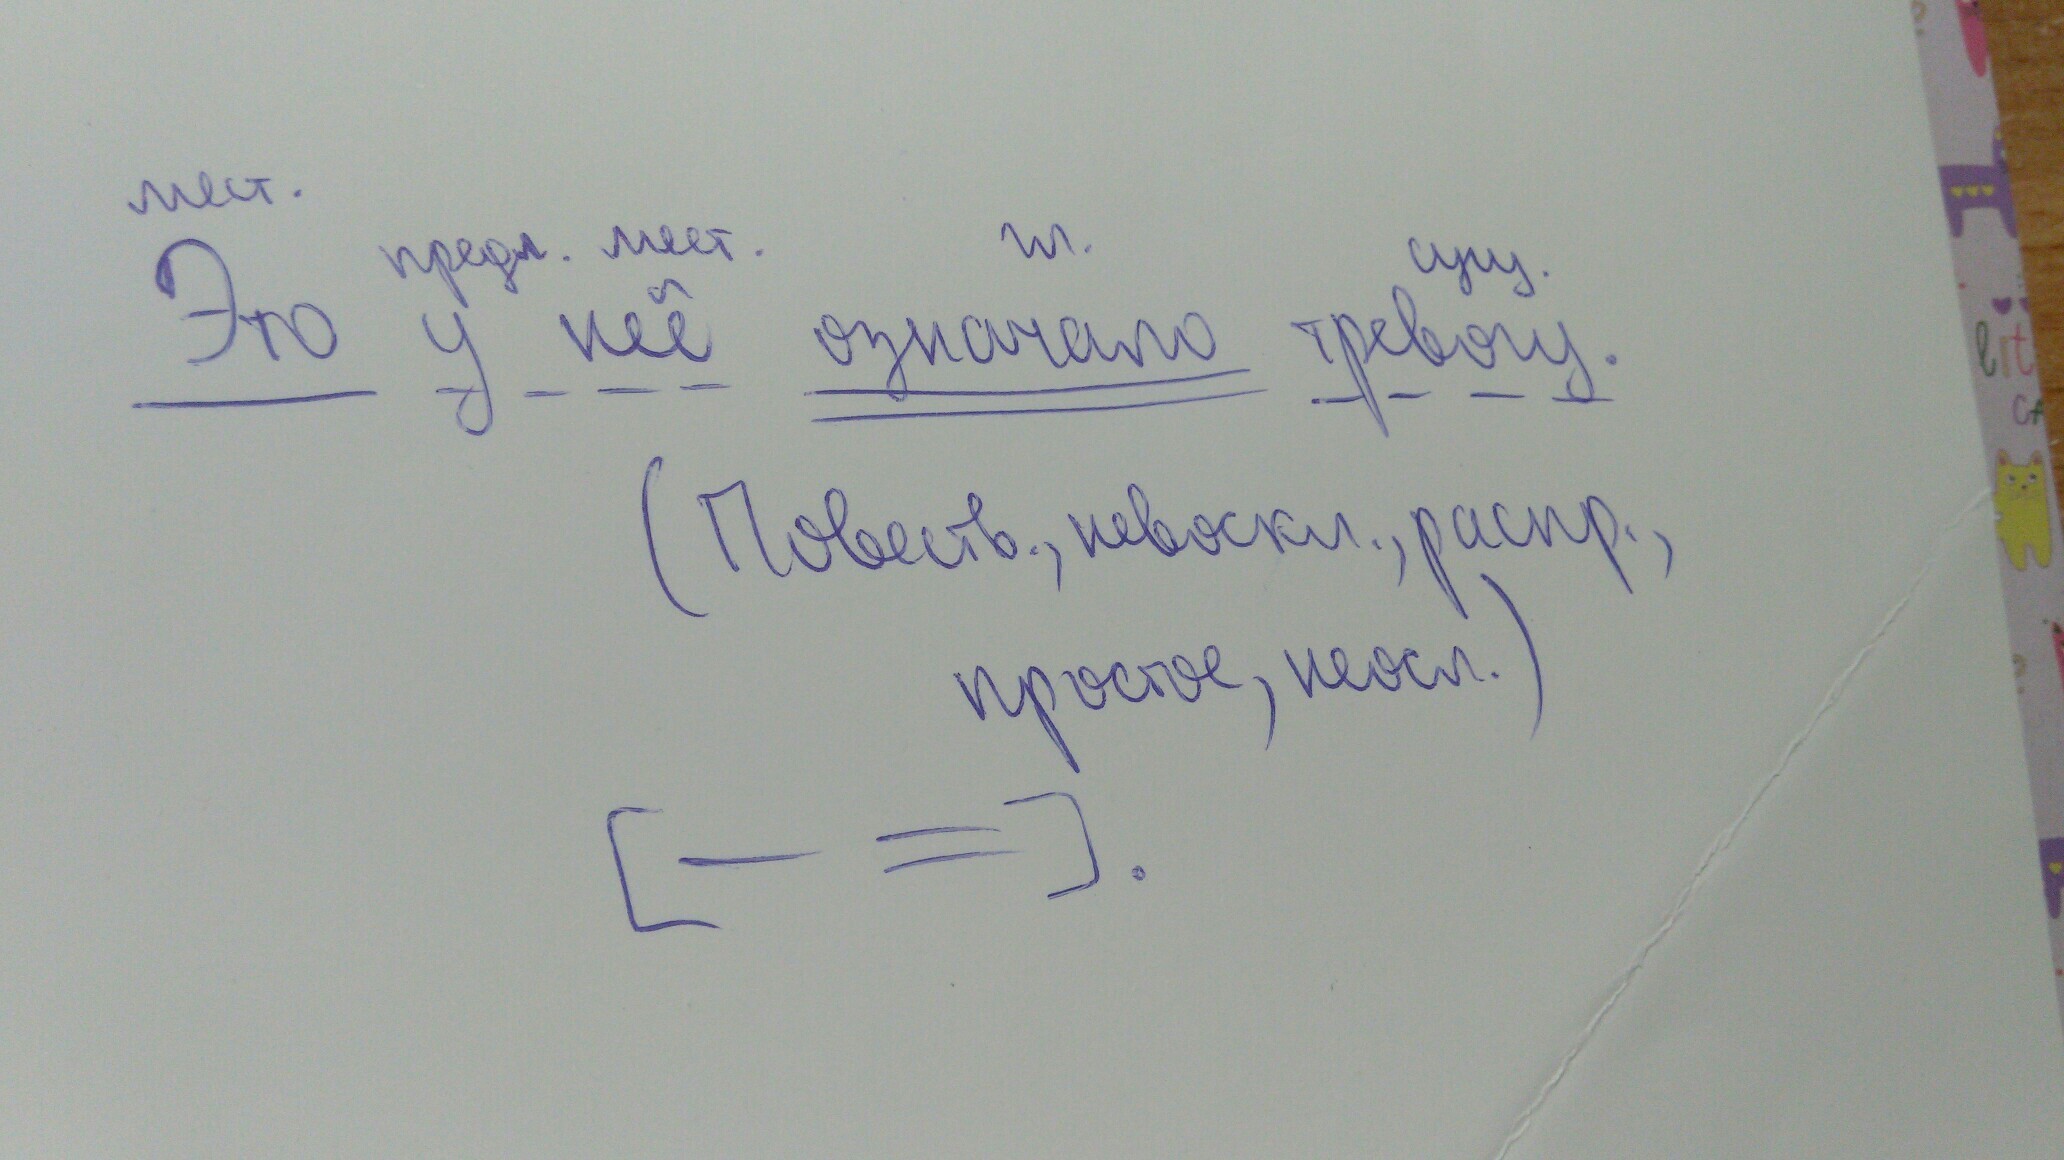 мест.
предл. мест. гл. сущ.
Это у неё означало тревогу.
(Повеств., невоскл., распр.,
простое, неосл.)
[— =].